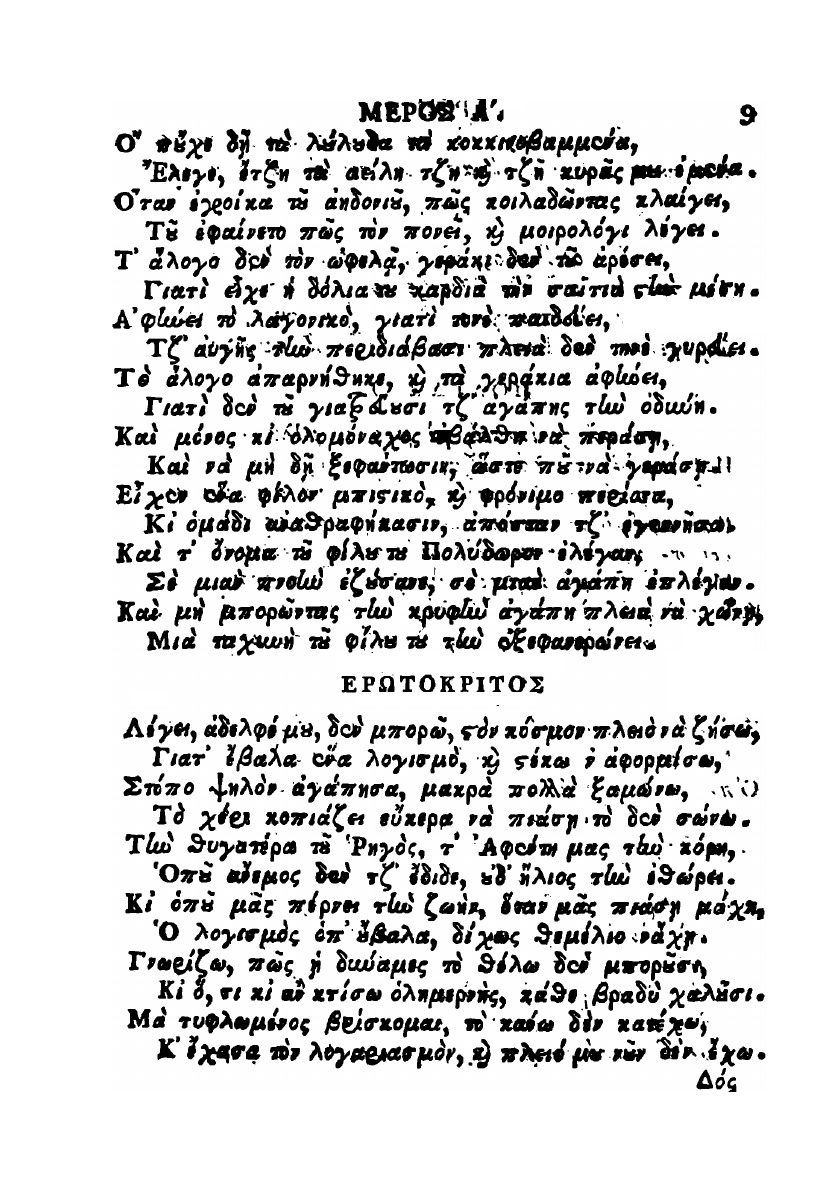 ΜΕΡΟΣ Α΄. 9
Ὅ που χε δῆ τὰ λούλουδα τὰ κοκκινοβαμμένα,
Ἔλεγε, ἔτζη τὰ χείλη τζη καὶ τζῆ κυρᾶς μου ἐμένα.
Ὅταν ἐγροίκα τοῦ ἀηδονιοῦ, πῶς κοιλαδῶντας κλαίγει,
Τοῦ ἐφαίνετο πῶς τὸν πονεῖ, καὶ μοιρολόγι λέγει.
Τ' ἄλογο δὲν τὸν ὠφελᾷ, γεράκι δὲν τοῦ ἀρέσει,
Γιατὶ εἶχε ἡ δόλια του καρδιὰ τὴν σαϊτιὰ στὴν μέση.
Ἀφίνει τὸ λαγονικὸ, γιατὶ τονὲ παιδεύει,
Τζ' αὐγῆς τὴν περιδιάβασι πλειὰ δὲν τηνὲ γυρεύει.
Τὸ ἄλογο ἀπαρνήθηκε, καὶ τὰ γεράκια ἀφίνει,
Γιατὶ δὲν τοῦ γιατρεύουσι τζ' ἀγάπης τὴν ὀδύνη.
Καὶ μόνος κι ὁλομόναχος ἐβάλθη νὰ περάση,
Καὶ νὰ μὴ δῆ ξεφάντωσιν, ὥστε ποῦ νὰ γεράση.
Εἶχεν ἕνα φίλον μπιστικὸ, καὶ φρόνιμο περίσσα,
Κι ὁμάδι ἀναθραφήκασιν, ἀπόσταν τζ' ἐγεννῆσαν.
Καὶ τ' ὄνομα τοῦ φίλου του Πολύδωρον ἐλέγαν,
Σὲ μιὰν πνοὴν ἐζούσανε, σὲ μιὰν ἀγάπη ἐπλέγαν.
Καὶ μὴ μπορῶντας τὴν κρυφὴν ἀγάπη πλειὰ νὰ χώνη,
Μιὰ ταχυνὴ τοῦ φίλου του τὴν ἐξεφανερώνει.
ΕΡΩΤΟΚΡΙΤΟΣ
Λέγει, ἀδελφέ μου, δὲν μπορῶ, στὸν κόσμον πλειὸ νὰ ζήσω,
Γιατ' ἔβαλα ἕνα λογισμὸ, καὶ στέκω ν ἀφορμίσω,
Στόπο ψηλὸν ἀγάπησα, μακρὰ πολλὰ ξαμώνω,
Τὸ χέρι κοπιάζει εὔκερα νὰ πιάση τὸ δὲν σώνω.
Τὴν θυγατέρα τοῦ Ῥηγὸς, τ' Ἀφέντη μας τὴν κόρη,
Ὁποῦ ἄνεμος δὲν τζ' ἔδιδε, οὐδ' ἥλιος τὴν ἐθώρει.
Κι ὁποῦ μᾶς πέρνει τὴν ζωὴν, ὅταν μᾶς πιάση μάχη,
Ὁ λογισμὸς ὁπ' ἔβαλα, δίχως θεμέλιο νάχη.
Γνωρίζω, πῶς ἡ δύναμες τὸ θέλω δὲν μποροῦση,
Κι ὅ, τι κι ἂν κτίσω ὁλημερνῆς, κάθε βραδὺ χαλοῦσι.
Μὰ τυφλωμένος βρίσκομαι, τὸ κάνω δὲν κατέχω,
Κ' ἔχασα τὸν λογαριασμὸν, καὶ πλειό μου νοῦν δὲν ἔχω.
Δός